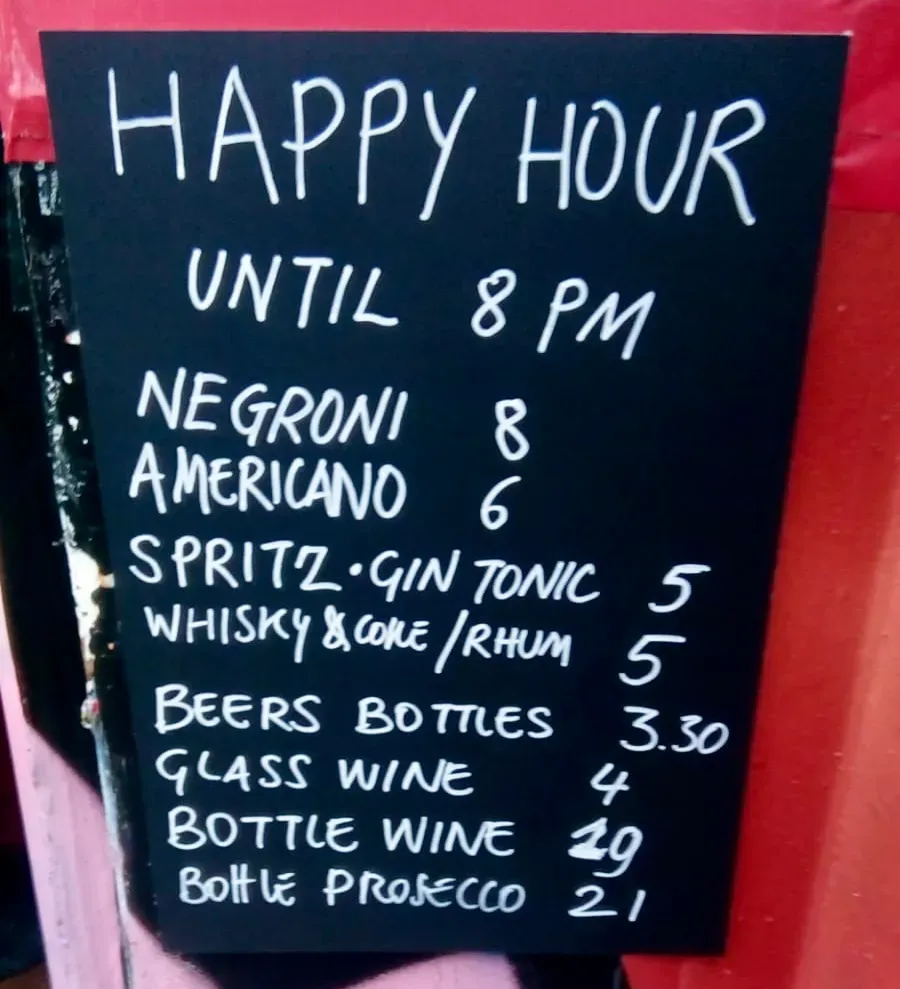 HAPPY HOUR
UNTIL 8 PM
NEGRONI 8
AMERICANO 6
SPRITZ·GIN TONIC 5
WHISKY & COKE /RHUM 5
BEERS BOTTLES 3.30
GLASS WINE 4
BOTTLE WINE 19
BOttLE PROSECCO 21